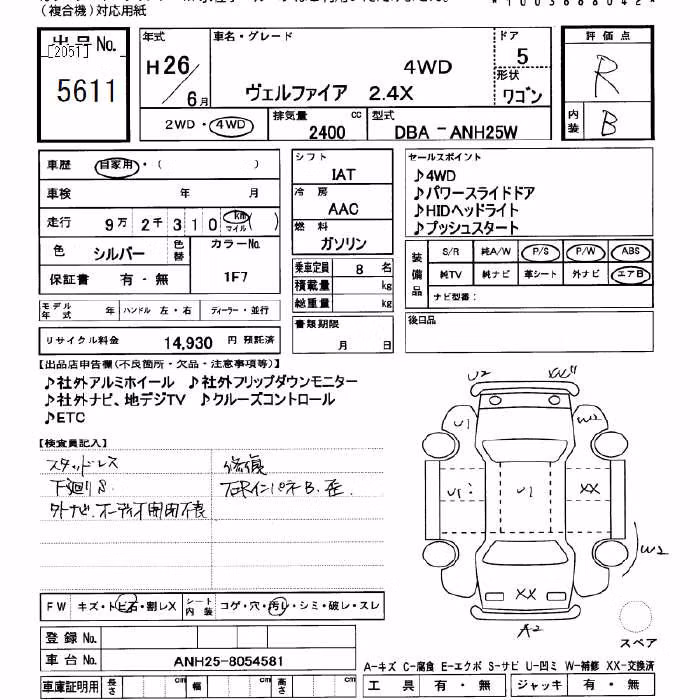 (複合機)対応用紙
*1003688042*
出品No.
[2051]
5611
年式
H26/6月
車名・グレード
4WD
ヴェルファイア 2.4X
ドア
5
形状
ワゴン
評価点
R
内装
B
2WD・4WD
排気量
2400 cc
型式
DBA − ANH25W
車歴
自家用・( )
車検 年 月
走行 9万2千310 km マイル ( )
色 シルバー
色替
カラーNo.
1F7
保証書 有・無
シフト
IAT
冷房
AAC
燃料
ガソリン
乗車定員 8 名
積載量 kg
総重量 kg
セールスポイント
♪4WD
♪パワースライドドア
♪HIDヘッドライト
♪プッシュスタート
装備品
S/R 純A/W P/S P/W ABS
純TV 純ナビ 革シート 外ナビ エアB
ナビ型番:
モデル年式 年 ハンドル 左・右 ディーラー・並行
リサイクル料金 14,930 円 預託済
書類期限
月 日
後日品
【出品店申告欄(不良箇所・欠品・注意事項等)】
♪社外アルミホイール ♪社外フリップダウンモニター
♪社外ナビ、地デジTV ♪クルーズコントロール
♪ETC
【検査員記入】
スタッドレス
下廻りS
外ナビ・オーディオ開閉不良
修復
右Rインパネ B.歪
U2
XX
U1
W2
U1
U1
XX
W2
XX
A2
スペア
FW キズ・トビ石・割レX
シート内装 コゲ・穴・汚レ・シミ・破レ・スレ
登録No.
車台No. ANH25-8054581
車庫証明用 長さ cm 幅 cm 高さ cm
A-キズ C-腐食 E-エクボ S-サビ U-凹ミ W-補修 XX-交換済
工具 有・無 ジャッキ 有・無